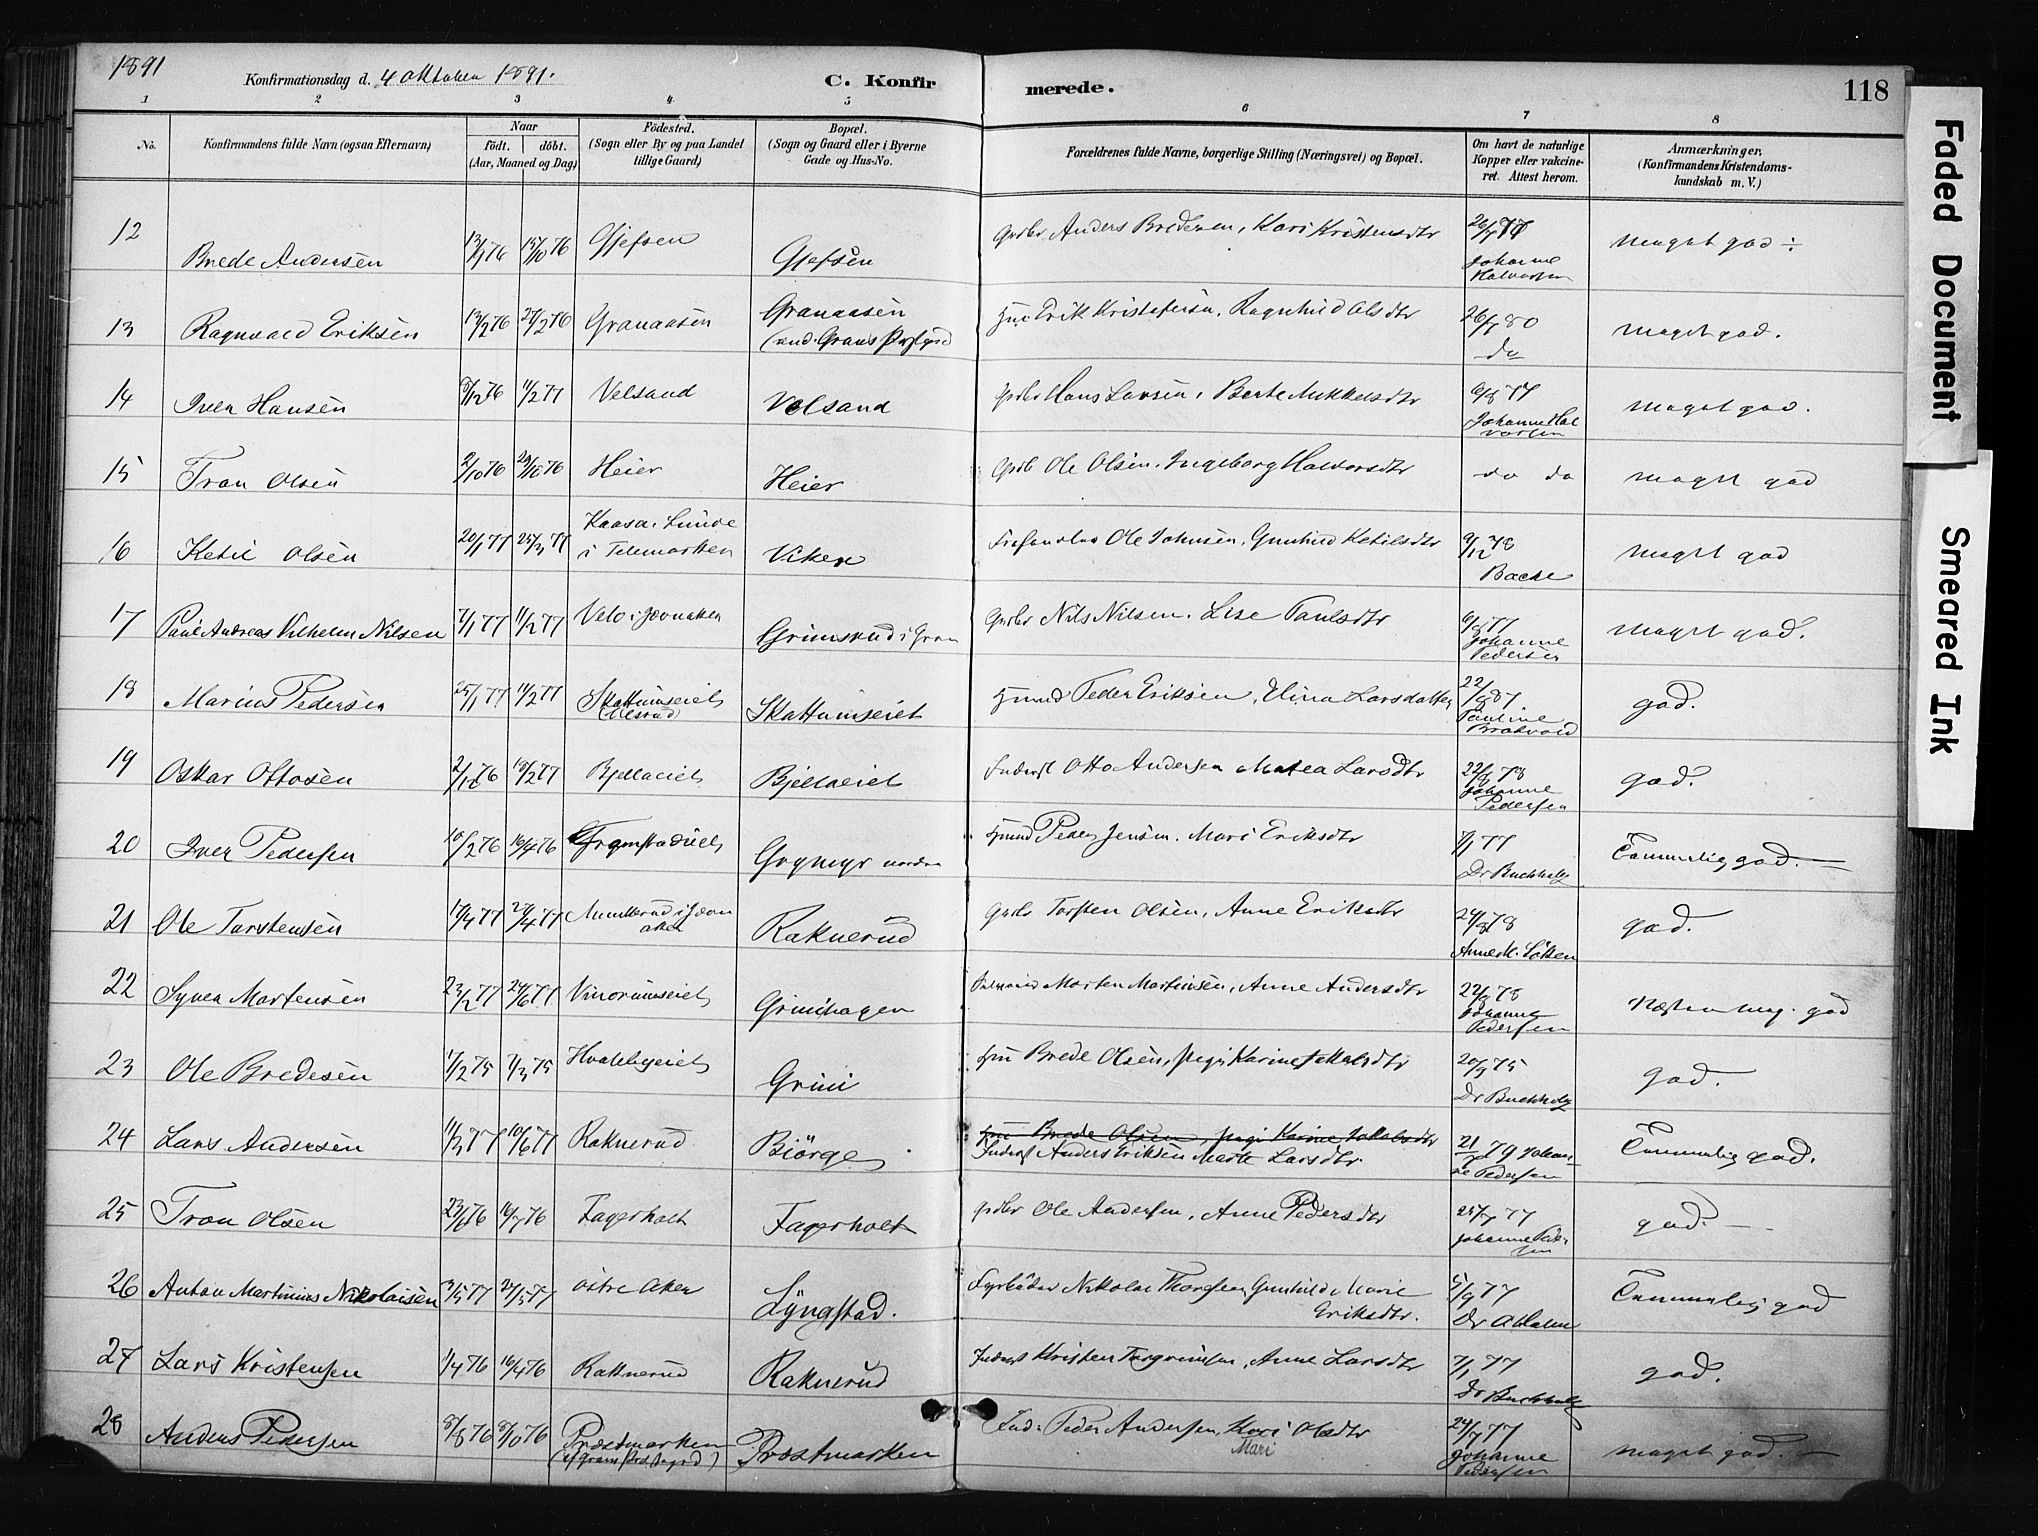 1891
Konfirmationsdag d. 4 Oktober 1891.
C. Konfir
merede.
118
1 2 3 4 5 6 7 8
No.
Konfirmandens fulde Navn (ogsaa Efternavn)
Naar
født. døbt.
(Aar, Maaned og Dag)
Fødested.
(Sogn eller By og paa Landet
tillige Gaard)
Bopæl.
(Sogn og Gaard eller i Byerne
Gade og Hus-No.
Forældrenes fulde Navne, borgerlige Stilling (Næringsvei) og Bopæl.
Om havt de naturlige
Kopper eller vakcine-
ret. Attest herom.
Anmærkninger,
(Konfirmandens Kristendoms-
kundskab m. V.)
12 Brede Andersen Gjefsen Gjefsen Anders Bredesen, Kari Kristensdtr Johanne Halvorsen meget god ÷
13 Ragnvald Eriksen 13/2 76 27/2 76 Granaasen Granaasen Erik Kristofersen, Ragnhild Olsdtr 26/7 80 do meget god.
14 Iver Hansen 8/12 76 11/2 77 Velsand Velsand Grdbr Hans Larsen, Berte Mikkelsdtr 9/8 77 Johanne Halvorsen meget god.
15 Tron Olsen 2/10 76 29/10 76 Heier Heier Grdb Ole Olsen, Ingeborg Halvorsdtr do do meget god
16 Ketil Olsen 20/1 77 25/3 77 Kaasa i Lunde i Telemarken Viken Ole Johnsen, Gunhild Ketilsdtr 9/12 78 Bache meget god
17 Paul Andreas Vilhelm Nilsen 7/1 77 11/2 77 Velo i Jevnaker Grimsrud i Gran Grdbr Nils Nilsen, Lise Paulsdtr 6/8 77 Johanne Pedersen meget god.
18 Marius Pedersen 25/1 77 11/2 77 Skattumseiet Skattumseiet Husmd Peder Eriksen, Elina Larsdatter 22/8 87 Pauline Bratvold god.
19 Oskar Ottosen 2/12 76 18/2 77 Bjellaeiet Bjellaeiet Inderst Otto Andersen Matea Larsdtr 22/8 78 Johanne Pedersen god.
20 Iver Pedersen 10/2 76 16/4 76 Grymyr nordre Husmd Peder Jensen, Mari Eriksdtr 7/1 77 Dr Buchholz Temmelig god.
21 Ole Torstensen 17/4 77 27/4 77 Raknerud Grdbr Torsten Olsen, Anne Eriksdtr 24/8 78 Anne M. Løken god.
22 Syver Martensen 23/2 77 24/6 77 Vinorumseiet Grinihagen Morten Martinsen, Anne Andersdtr 22/8 78 Johanne Pedersen Næsten meg. god
23 Ole Bredesen 1/2 75 7/3 75 Hvalebyeiet Grini Brede Olsen, pige Karine Jakobsdtr 20/9 75 Dr Buchholz god.
24 Lars Andersen 11/3 77 10/6 77 Raknerud Bjørge Brede Olsen, pige Karine Jakobsdtr
Inderst Anders Eriksen Marte Larsdtr. 21/7 79 Johanne Pedersen Temmelig god.
25 Tron Olsen 23/6 76 16/7 76 Fagerholt Fagerholt Grdbr Ole Andersen, Anne Pedersdtr 25/7 77 Johanne Pedersen god.
26 Anton Martinius Nikolaisen 3/5 77 27/5 77 østre Aker Lyngstad. Fyrbøder Nikolai Thorsen Gunhild Marie Eriksdtr. 5/9 77 Temmelig god
27 Lars Kristensen 1/4 76 16/4 76 Raknerud Raknerud Inderst Kristen Torgrimsen, Anne Larsdtr 7/1 77 Dr Buchholz god.
28 Anders Pedersen 8/8 76 8/10 76 Præstmarken Præstmarken Ind: Peder Andersen, Kari Olsdtr
Mari 24/7 77 Johanne Pedersen meget god.
Faded Document
Smeared Ink